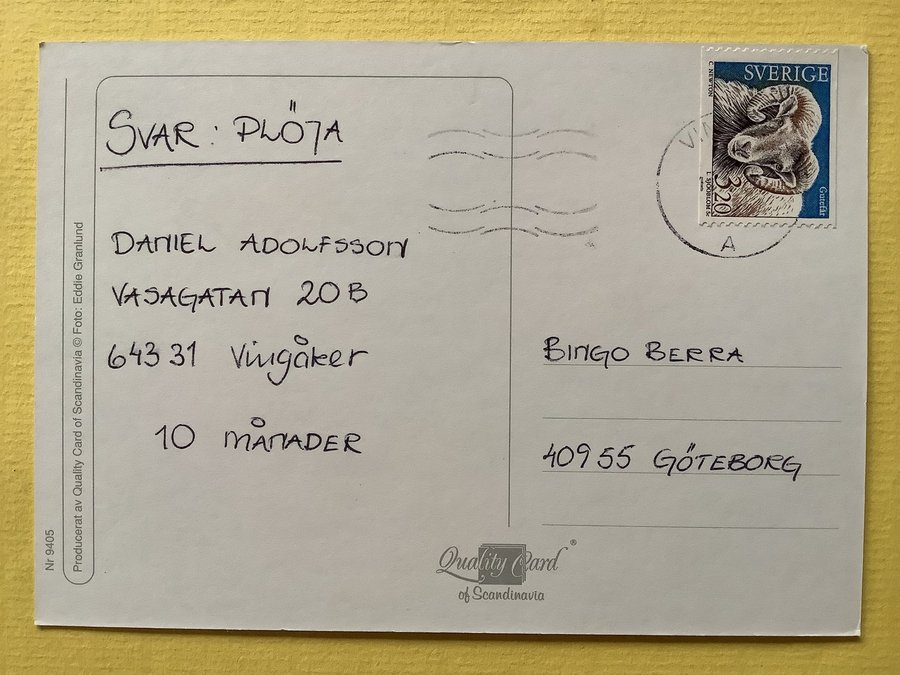 SVAR: PLÖJA
DANIEL ADOLFSSON
VASAGATAN 20B
643 31 Vingåker
10 MÅNADER
Nr 9405
Producerat av Quality Card of Scandinavia © Foto: Eddie Granlund
SVERIGE
C. NEWTON
Gutefår
3.20
L. SJÖÖBLOM SC
A
BINGO BERRA
409 55 GÖTEBORG
Quality Card®
of Scandinavia